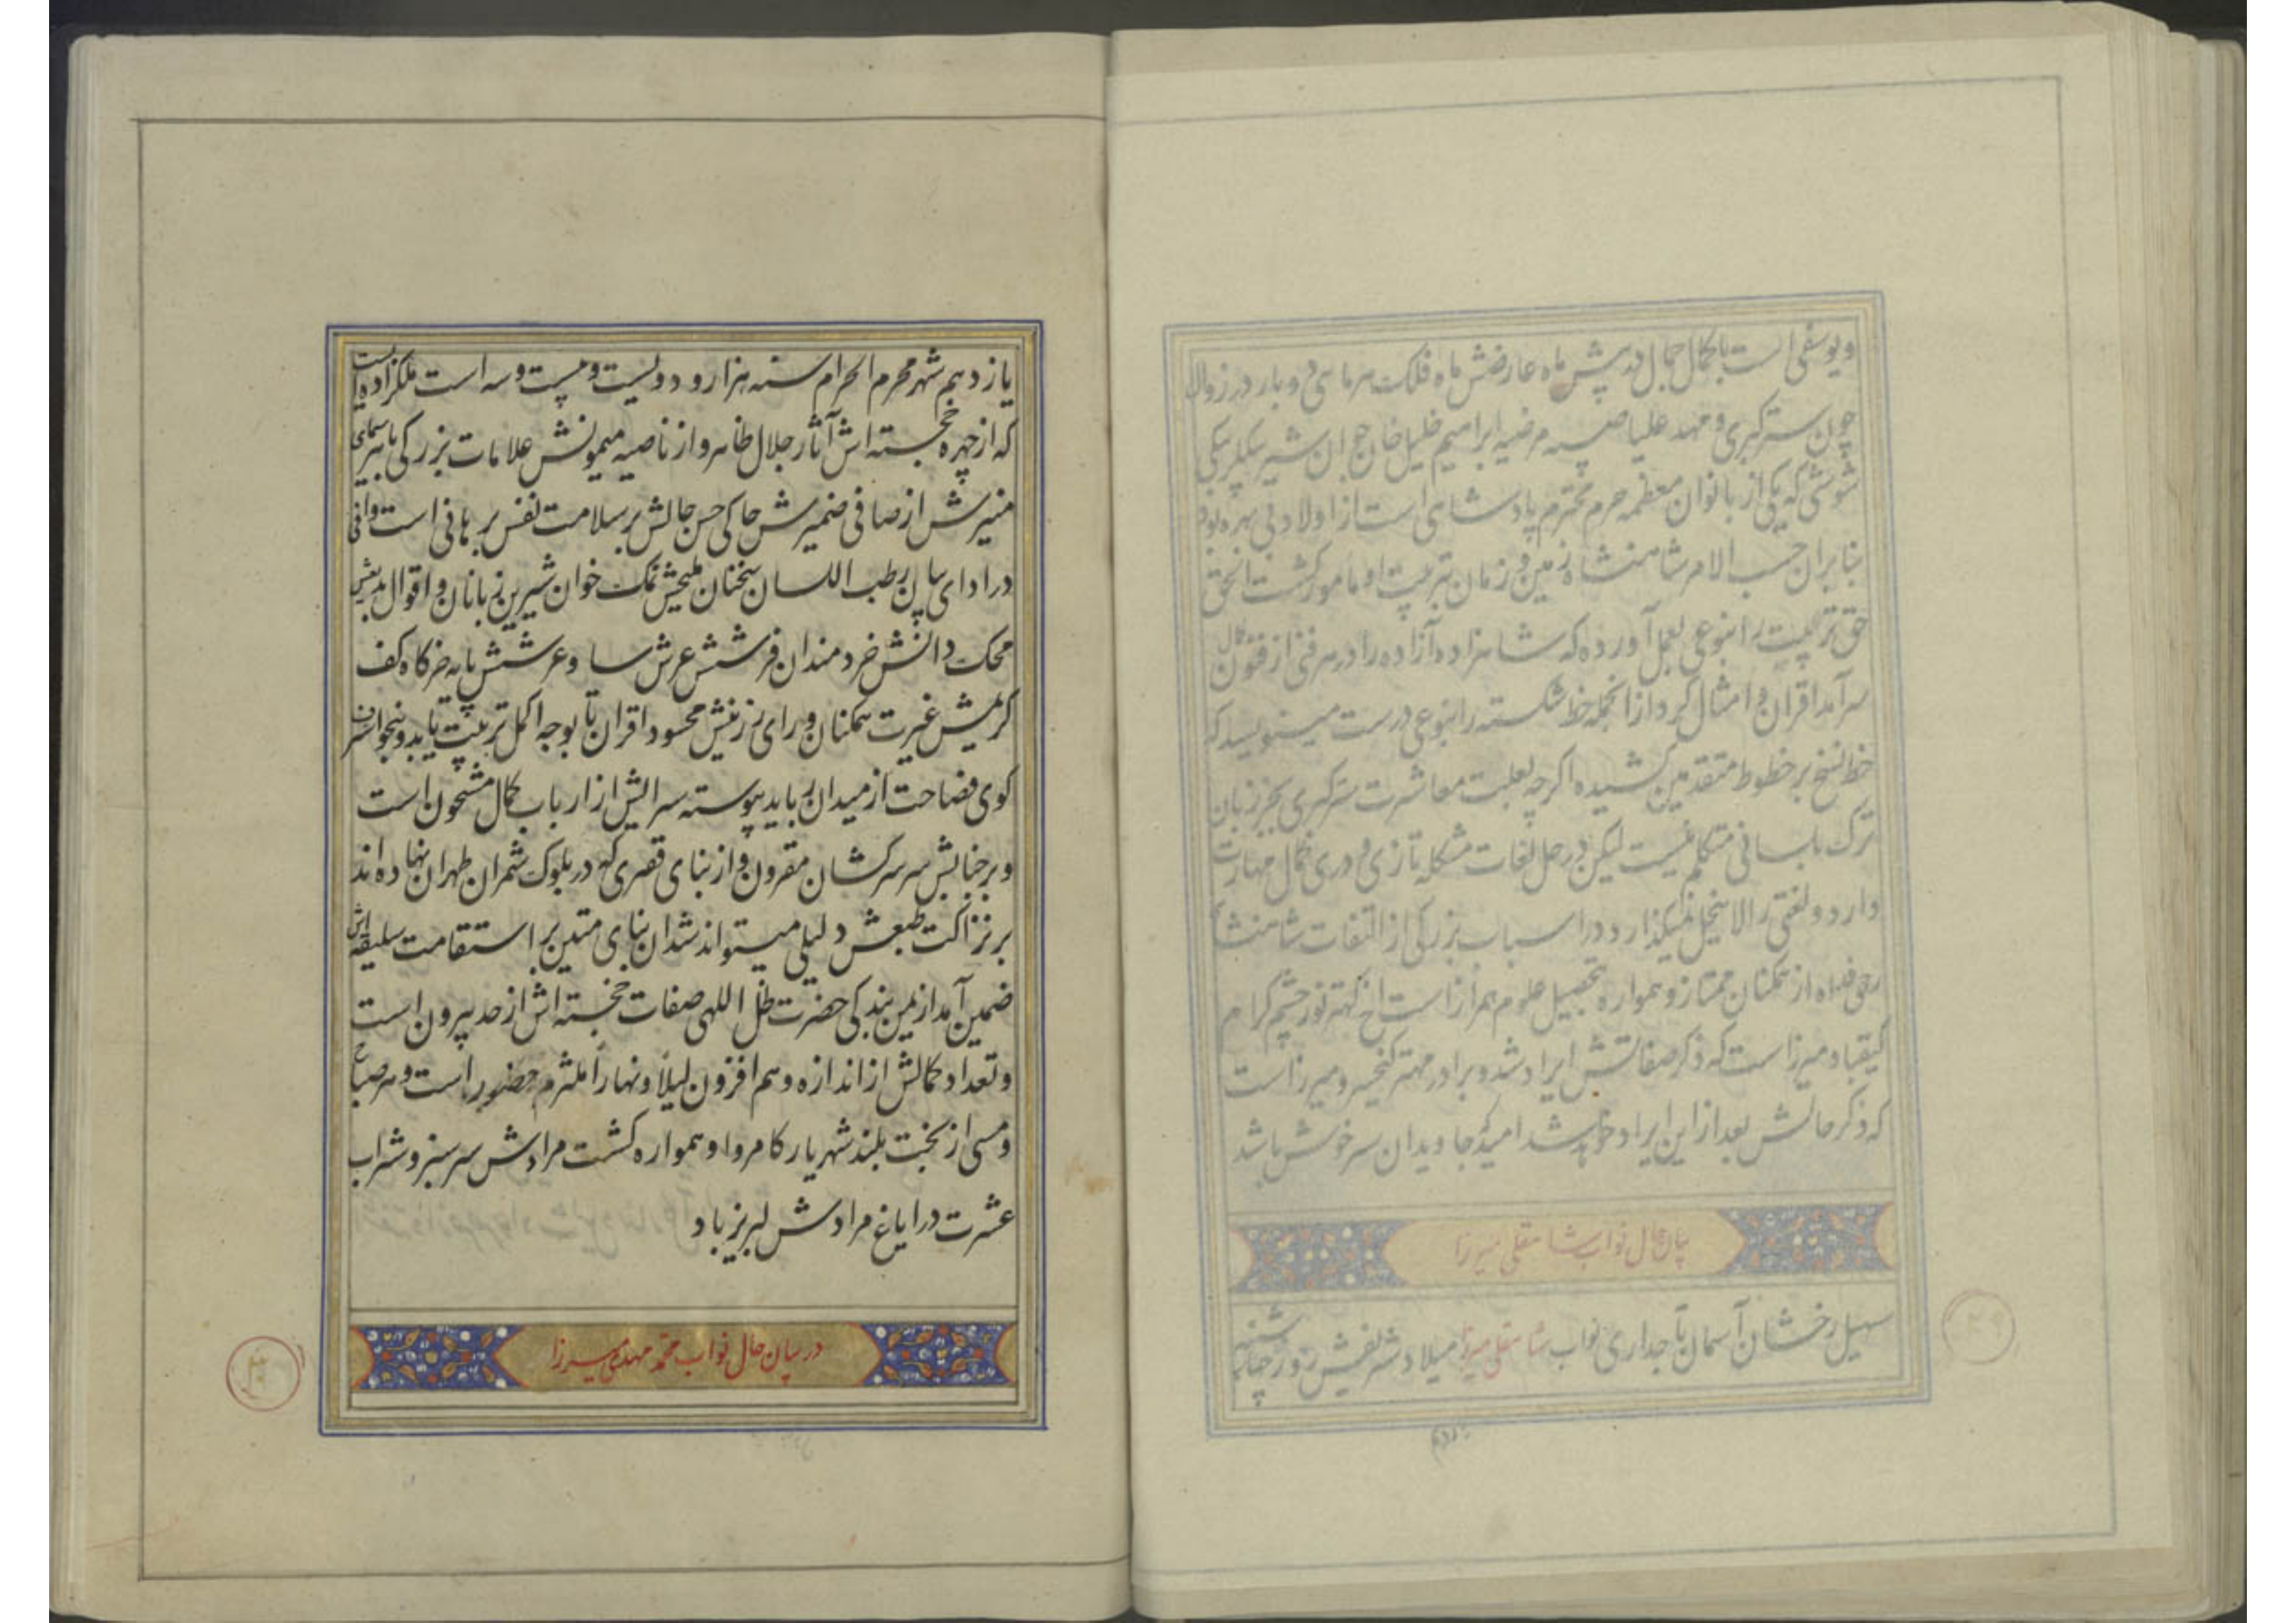 و یوسفی است با کمال جمال در پیش ماه عارضش ماه فلک هر ماهی دو بار در زوال
چون ستر کبری و مهد علیا صبیه مرضیه ابراهیم خلیل خان جوانشیر بیکلربیکی
شوشی که یکی از بانوان معظمه حرم محترم پادشاهی است از اولاد بی بهره بود
بنابران حسب الامر شاهنشاه زمین و زمان بتربیت او مامور کشت الحق
حق تربیت را بنوعی بعمل آورده که شاهزاده آزاده را در هر فنی از فنون کمال
سرآمد اقران و امثال کرد از انجمله خط شکسته را بنوعی درست مینویسد که
خط نسخ بر خطوط متقدمین کشیده اکرچه بعلت معاشرت ستر کبری بجز زبان
ترک بلسانی متکلم نیست لیکن در حل لغات مشکله تازی و دری کمال مهارت
دارد و لغتی را لاینحل نمیکذارد در اسباب بزرکی از التفات شاهنشاه
روحی فداه از همکنان ممتاز و همواره بتحصیل علوم همراز است اخ کهتر نور چشم کرام
کیقباد میرزا است که ذکر صفاتش ایراد شد و برادر مهتر کیخسرو میرزا است
که ذکر حالش بعد از این ایراد خواهد شد امید که جاویدان سرخوش باشد
بیان حال نواب شاهقلی میرزا
سهیل رخشان آسمان تاجداری نواب شاهقلی میرزا میلاد شریفش روز چهارشنبه
یازدهم
یازدهم شهر محرم الحرام سنه هزار و دویست و بیست و سه است ملکزاده ایست
که از چهره خجسته اش آثار جلال ظاهر و از ناصیه میمونش علامات بزرکی باهر سیمای
منیرش از صافی ضمیرش حاکی حسن حالش بر سلامت نفس برهانی است وافی
در ادای بیان رطب اللسان سخنان ملیحش نمک خوان شیرین زبانان و اقوال بدیعش
محک دانش خردمندان فرشش عرش سا و عرشش پایه خرکاه کف
کریمش غیرت همکنان و رای رزینش محسود اقران تا بوجه اکمل تربیت یابد و
کوی فصاحت از میدان رباید پیوسته سرایش از ارباب کمال مشحون است
و بر جنابش سر سرکشان مقرون و از بنای قصری که در بلوک شمران طهران نهاده اند
بر نزاکت طبعش دلیلی میتواند شد ان بنای متین بر استقامت سلیقه اش
ضمین آمد از یمن بندکی حضرت ظل اللهی صفات خجسته اش از حد بیرون است
و تعداد کمالش از اندازه وهم افزون لیلاً و نهاراً ملتزم حضور است و هر صباح
و مسی از بخت بلند شهریار کامروا و همواره کشت مرادش سرسبز و شراب
عشرت در ایاغ مرادش لبریز باد
در بیان حال نواب محمد مهدی میرزا